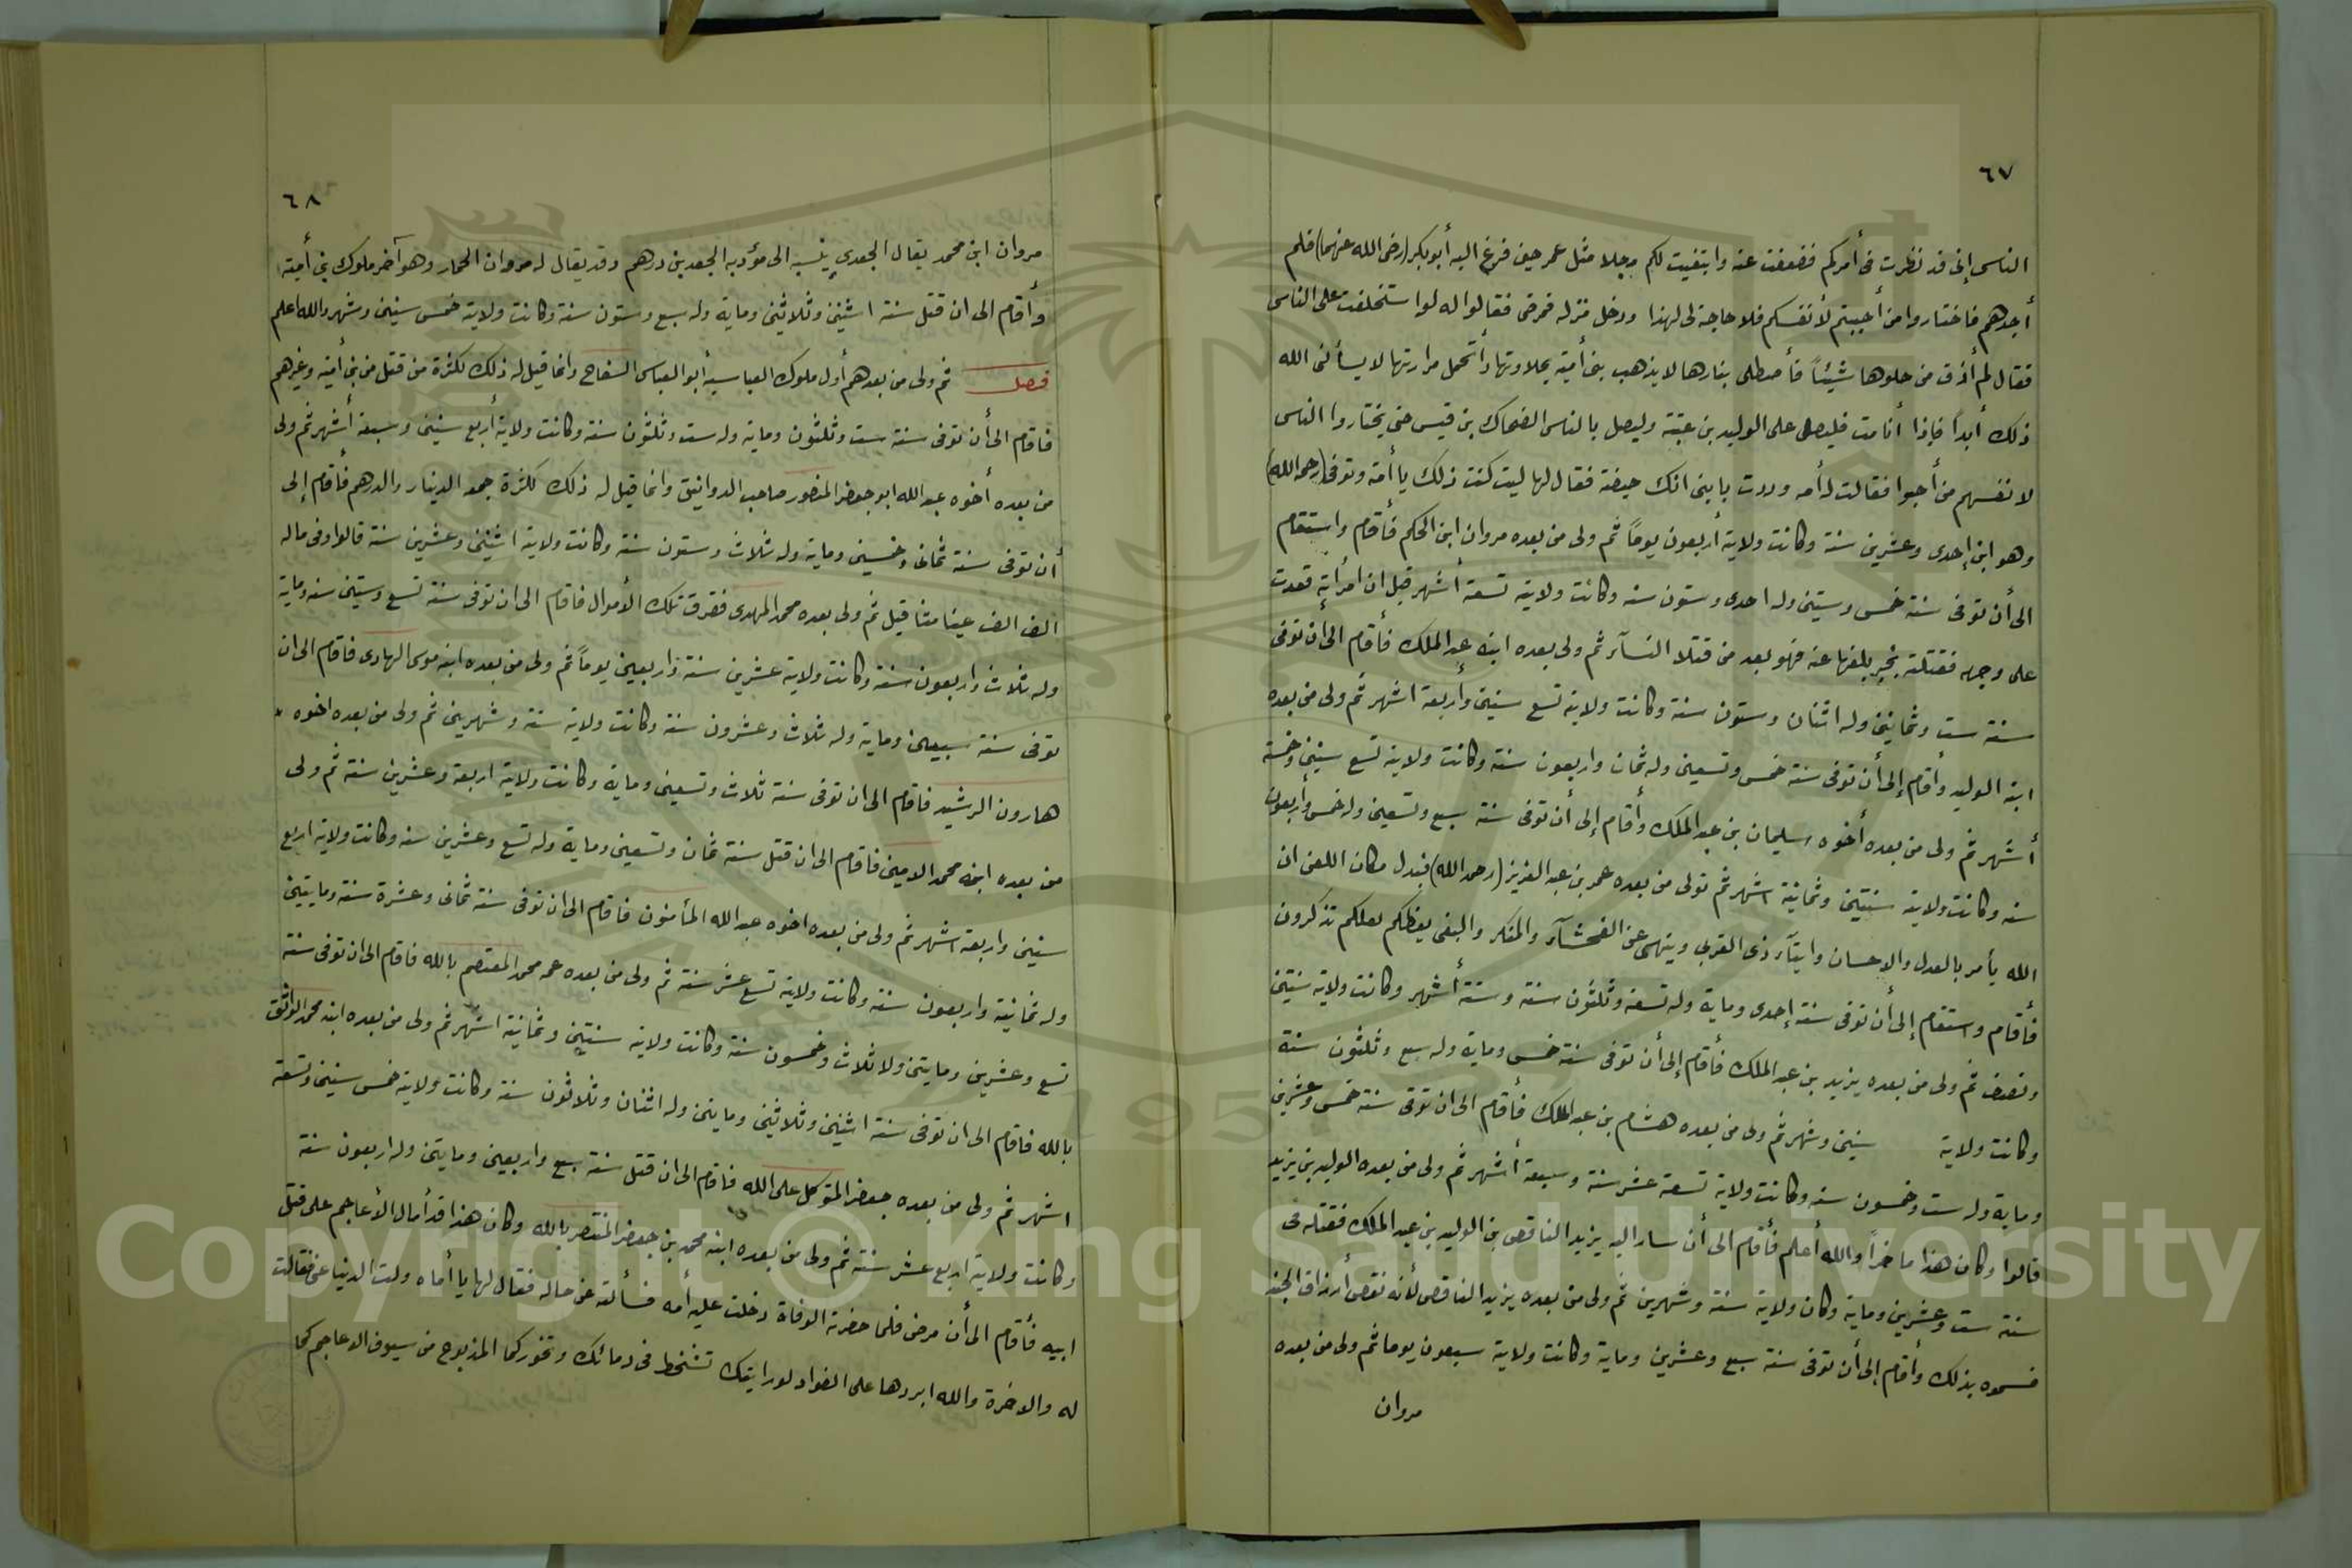 ٦٧
الناس إنى قد نظرت فى أمركم فضعفت عنه وابتغيت لكم رجلا مثل عمر حين فرغ اليه أبو بكر (رضى الله عنهما) فلم
أجدهم فاختاروا من أحببتم لأنفسكم فلا حاجة لى لهذا ودخل منزله فمرض فقالوا له لو استخلفت على الناس
فقال لم أذق من حلوها شيئاً فأصطلى بنارها لا يذهب بنى أمية بحلاوتها وأتحمل مرارتها لا يسألنى الله
ذلك أبداً فإذا أنا مت فليصلى على الوليد بن عتبة وليصل بالناس الضحاك بن قيس حتى يختاروا الناس
لانفسهم من أحبوا فقالت له أمه وددت يا بنى انك حيضة فقال لها ليت كنت ذلك يا أمة وتوفى (رحمه الله)
وهو ابن إحدى وعشرين سنة وكانت ولايته أربعون يوماً ثم ولى من بعده مروان ابن الحكم فأقام واستقام
الى أن توفى سنة خمس وستين وله احدى وستون سنة وكانت ولايته تسعة أشهر قيل ان امرأته قعدت
على وجهه فقتلته بخبر بلغها عنه فهو يعد من قتلا النسآء ثم ولى بعده ابنه عبد الملك فأقام الى ان توفى
سنة ست وثمانين وله اثنان وستون سنة وكانت ولايته تسع سنين وأربعة اشهر ثم ولى من بعده
ابنه الوليد وأقام إلى أن توفى سنة خمس وتسعين وله ثمان واربعون سنة وكانت ولايته تسع سنين وخمسة
أشهر ثم ولى من بعده أخوه سليمان بن عبد الملك وأقام إلى أن توفى سنة سبع وتسعين وله خمس وأربعون
سنة وكانت ولايته سنتين وثمانية اشهر ثم تولى من بعده عمر بن عبد العزيز (رحمه الله) فبدل مكان اللعن ان
الله يأمر بالعدل والاحسان وايتآء ذى القربى وينهى عن الفحشآء والمنكر والبغى يعظكم لعلكم تذكرون
فأقام واستقام إلى أن توفى سنة إحدى وماية وله تسعة وثلثون سنة وستة أشهر وكانت ولايته سنتين
ونصف ثم ولى من بعده يزيد بن عبد الملك فأقام إلى أن توفى سنة خمس وماية وله سبع وثلثون سنة
وكانت ولاية سنين وشهر ثم ولى من بعده هشام بن عبد الملك فأقام الى ان توفى سنة خمس وعشرين
وماية وله ست وخمسون سنة وكانت ولاية تسعة عشر سنة وسبعة أشهر ثم ولى من بعده الوليد بن يزيد
قالوا وكان هذا ما خراً والله أعلم فأقام الى أن سار اليه يزيد الناقص بن الوليد بن عبد الملك فقتله فى
سنة ست وعشرين وماية وكان ولاية سنة وشهرين ثم ولى من بعده يزيد الناقص لأنه نقص أرزاق الجند
فسموه بذلك وأقام إلى أن توفى سنة سبع وعشرين وماية وكانت ولاية سبعون يوما ثم ولى من بعده
مروان
٦٨
مروان ابن محمد يقال الجعدى ينسبه الى مؤدبه الجعد بن درهم وقد يقال له مروان الحمار وهو آخر ملوك بنى أمية
وأقام الى ان قتل سنة اثنين وثلاثين وماية وله سبع وستون سنة وكانت ولايته خمس سنين وشهر والله اعلم
فصل ثم ولى من بعدهم أول ملوك العباسية أبو العباس السفاح وانما قيل له ذلك لكثرة من قتل من بنى أمية وغيرهم
فاقام الى أن توفى سنة ست وثلثون وماية وله ست وثلثون سنة وكانت ولاية أربع سنين وسبعة أشهر ثم ولى
من بعده أخوه عبد الله ابو جعفر المنصور صاحب الدوانيق وانما قيل له ذلك لكثرة جمعه الدينار والدرهم فأقام إلى
أن توفى سنة ثمانى وخمسين وماية وله ثلاث وستون سنة وكانت ولاية اثنين وعشرين سنة قالوا وفى ماله
الف الف عينا مثاقيل ثم ولى بعده محمد المهدى ففرق تلك الأموال فاقام الى ان توفى سنة تسع وستين سنة وماية
وله ثلاث واربعون سنة وكانت ولاية عشرين سنة واربعين يوماً ثم ولى من بعده ابنه موسى الهادى فاقام الى ان
توفى سنة سبعين وماية وله ثلاث وعشرون سنة وكانت ولاية سنة وشهرين ثم ولى من بعده اخوه
هارون الرشيد فاقام الى ان توفى سنة ثلاث وتسعين وماية وكانت ولاية اربعة وعشرين سنة ثم ولى
من بعده ابنه محمد الامين فاقام الى ان قتل سنة ثمان وتسعين وماية وله تسع وعشرين سنة وكانت ولاية اربع
سنين واربعة اشهر ثم ولى من بعده اخوه عبد الله المأمنون فاقام الى ان توفى سنة ثمانى وعشرة سنة ومايتين
وله ثمانية واربعون سنة وكانت ولاية تسع عشر سنة ثم ولى من بعده عمه محمد المعتصم بالله فاقام الى ان توفى سنة
تسع وعشرين ومايتين وله ثلاث وخمسون سنة وكانت ولاية سنتين وثمانية اشهر ثم ولى من بعده ابنه محمد الواثق
بالله فاقام الى ان توفى سنة اثنين وثلاثين ومايتين وله اثنان وثلاثون سنة وكانت ولاية خمس سنين وتسعة
اشهر ثم ولى من بعده جعفر المتوكل على الله فاقام الى ان قتل سنة سبع واربعين ومايتين وله اربعون سنة
وكانت ولاية اربع عشر سنة ثم ولى من بعده ابنه محمد بن جعفر المنتصر بالله وكان هذا قد أمال الأعاجم على قتل
ابيه فأقام الى أن مرض فلما حضرته الوفاة دخلت عليه أمه فسألته عن حاله فقال لها يا أماه ولت الدنيا عنى فقالت
له والاخرة والله ابردها على الفواد لو رايتك تشخط فى دمائك وتخور كما المذبوح من سيوف الاعاجم كما
Copyright © King Saud University
1957